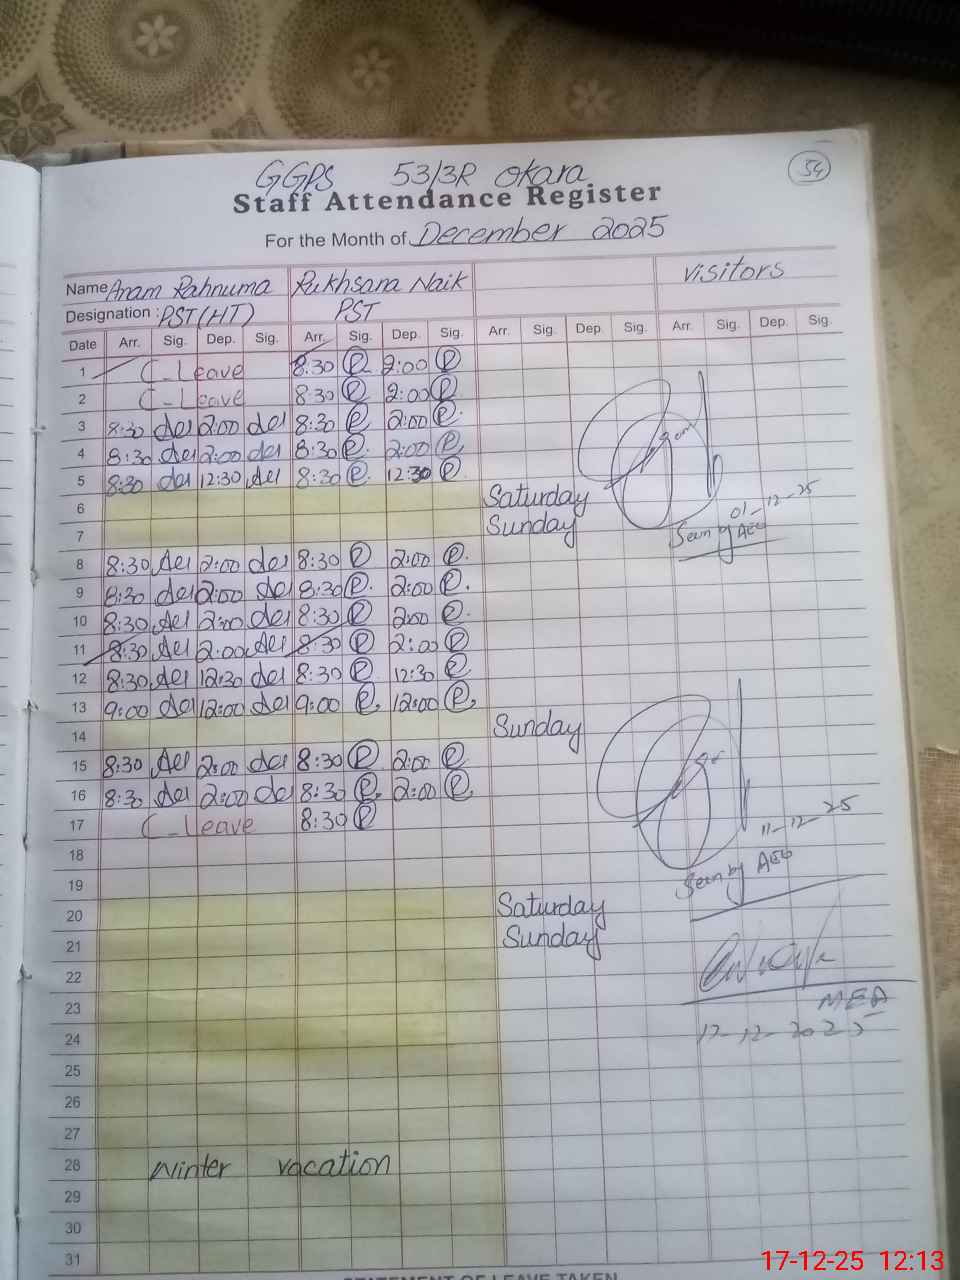 54
GGPS 53/3R Okara
Staff Attendance Register
For the Month of December 2025
Name Anam Rahnuma Rukhsana Naik Visitors
Designation : PST(HT) PST
Date Arr. Sig. Dep. Sig. Arr. Sig. Dep. Sig. Arr. Sig. Dep. Sig. Arr. Sig. Dep. Sig.
1 C-Leave 8:30 2:00
2 C-Leave 8:30 2:00
3 8:30 2:00 8:30 2:00
4 8:30 2:00 8:30 2:00
5 8:30 12:30 8:30 12:30
6 Saturday
7 Sunday
01-12-25
Seen by AEO
8 8:30 2:00 8:30 2:00
9 8:30 2:00 8:30 2:00
10 8:30 2:00 8:30 2:00
11 8:30 2:00 8:30 2:00
12 8:30 12:30 8:30 12:30
13 9:00 12:00 9:00 12:00
14 Sunday
15 8:30 2:00 8:30 2:00
16 8:30 2:00 8:30 2:00
17 C-Leave 8:30
11-12-25
18
19
Seen by AEO
20 Saturday
21 Sunday
22
23
MEA
24
17-12-2025
25
26
27
28 Winter vacation
29
30
31
STATEMENT OF LEAVE TAKEN
17-12-25 12:13